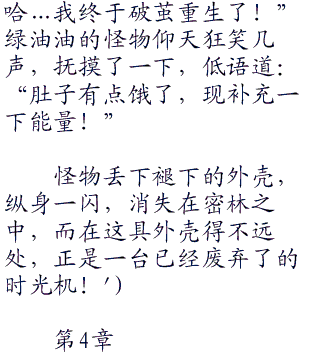 哈…我终于破茧重生了！”
绿油油的怪物仰天狂笑几
声，抚摸了一下，低语道：
“肚子有点饿了，现补充一
下能量！”
怪物丢下褪下的外壳，
纵身一闪，消失在密林之
中，而在这具外壳得不远
处，正是一台已经废弃了的
时光机！′)
第4章